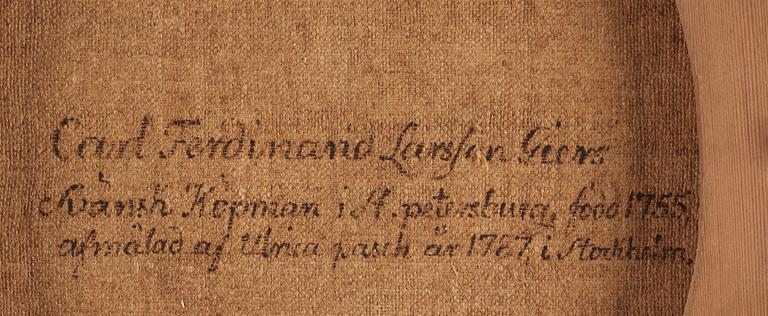 Carl Ferdinand Larsson Giers
Svänsk Köpman i St. petersburg, född 1755,
afmålad af Ulrica pasch år 1787, i Stockholm,